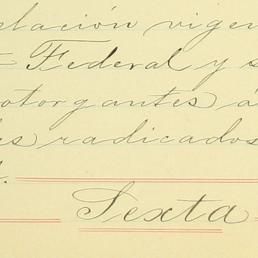 elación vigen
t Federal y s
otorgantes á
les radicados
Sexta